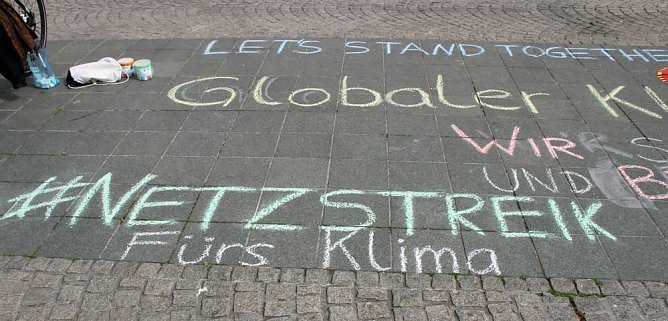 LET'S STAND TOGETHE
GLObaler KI
WIR S
UND B
#NETZSTREIK
Fürs Klima